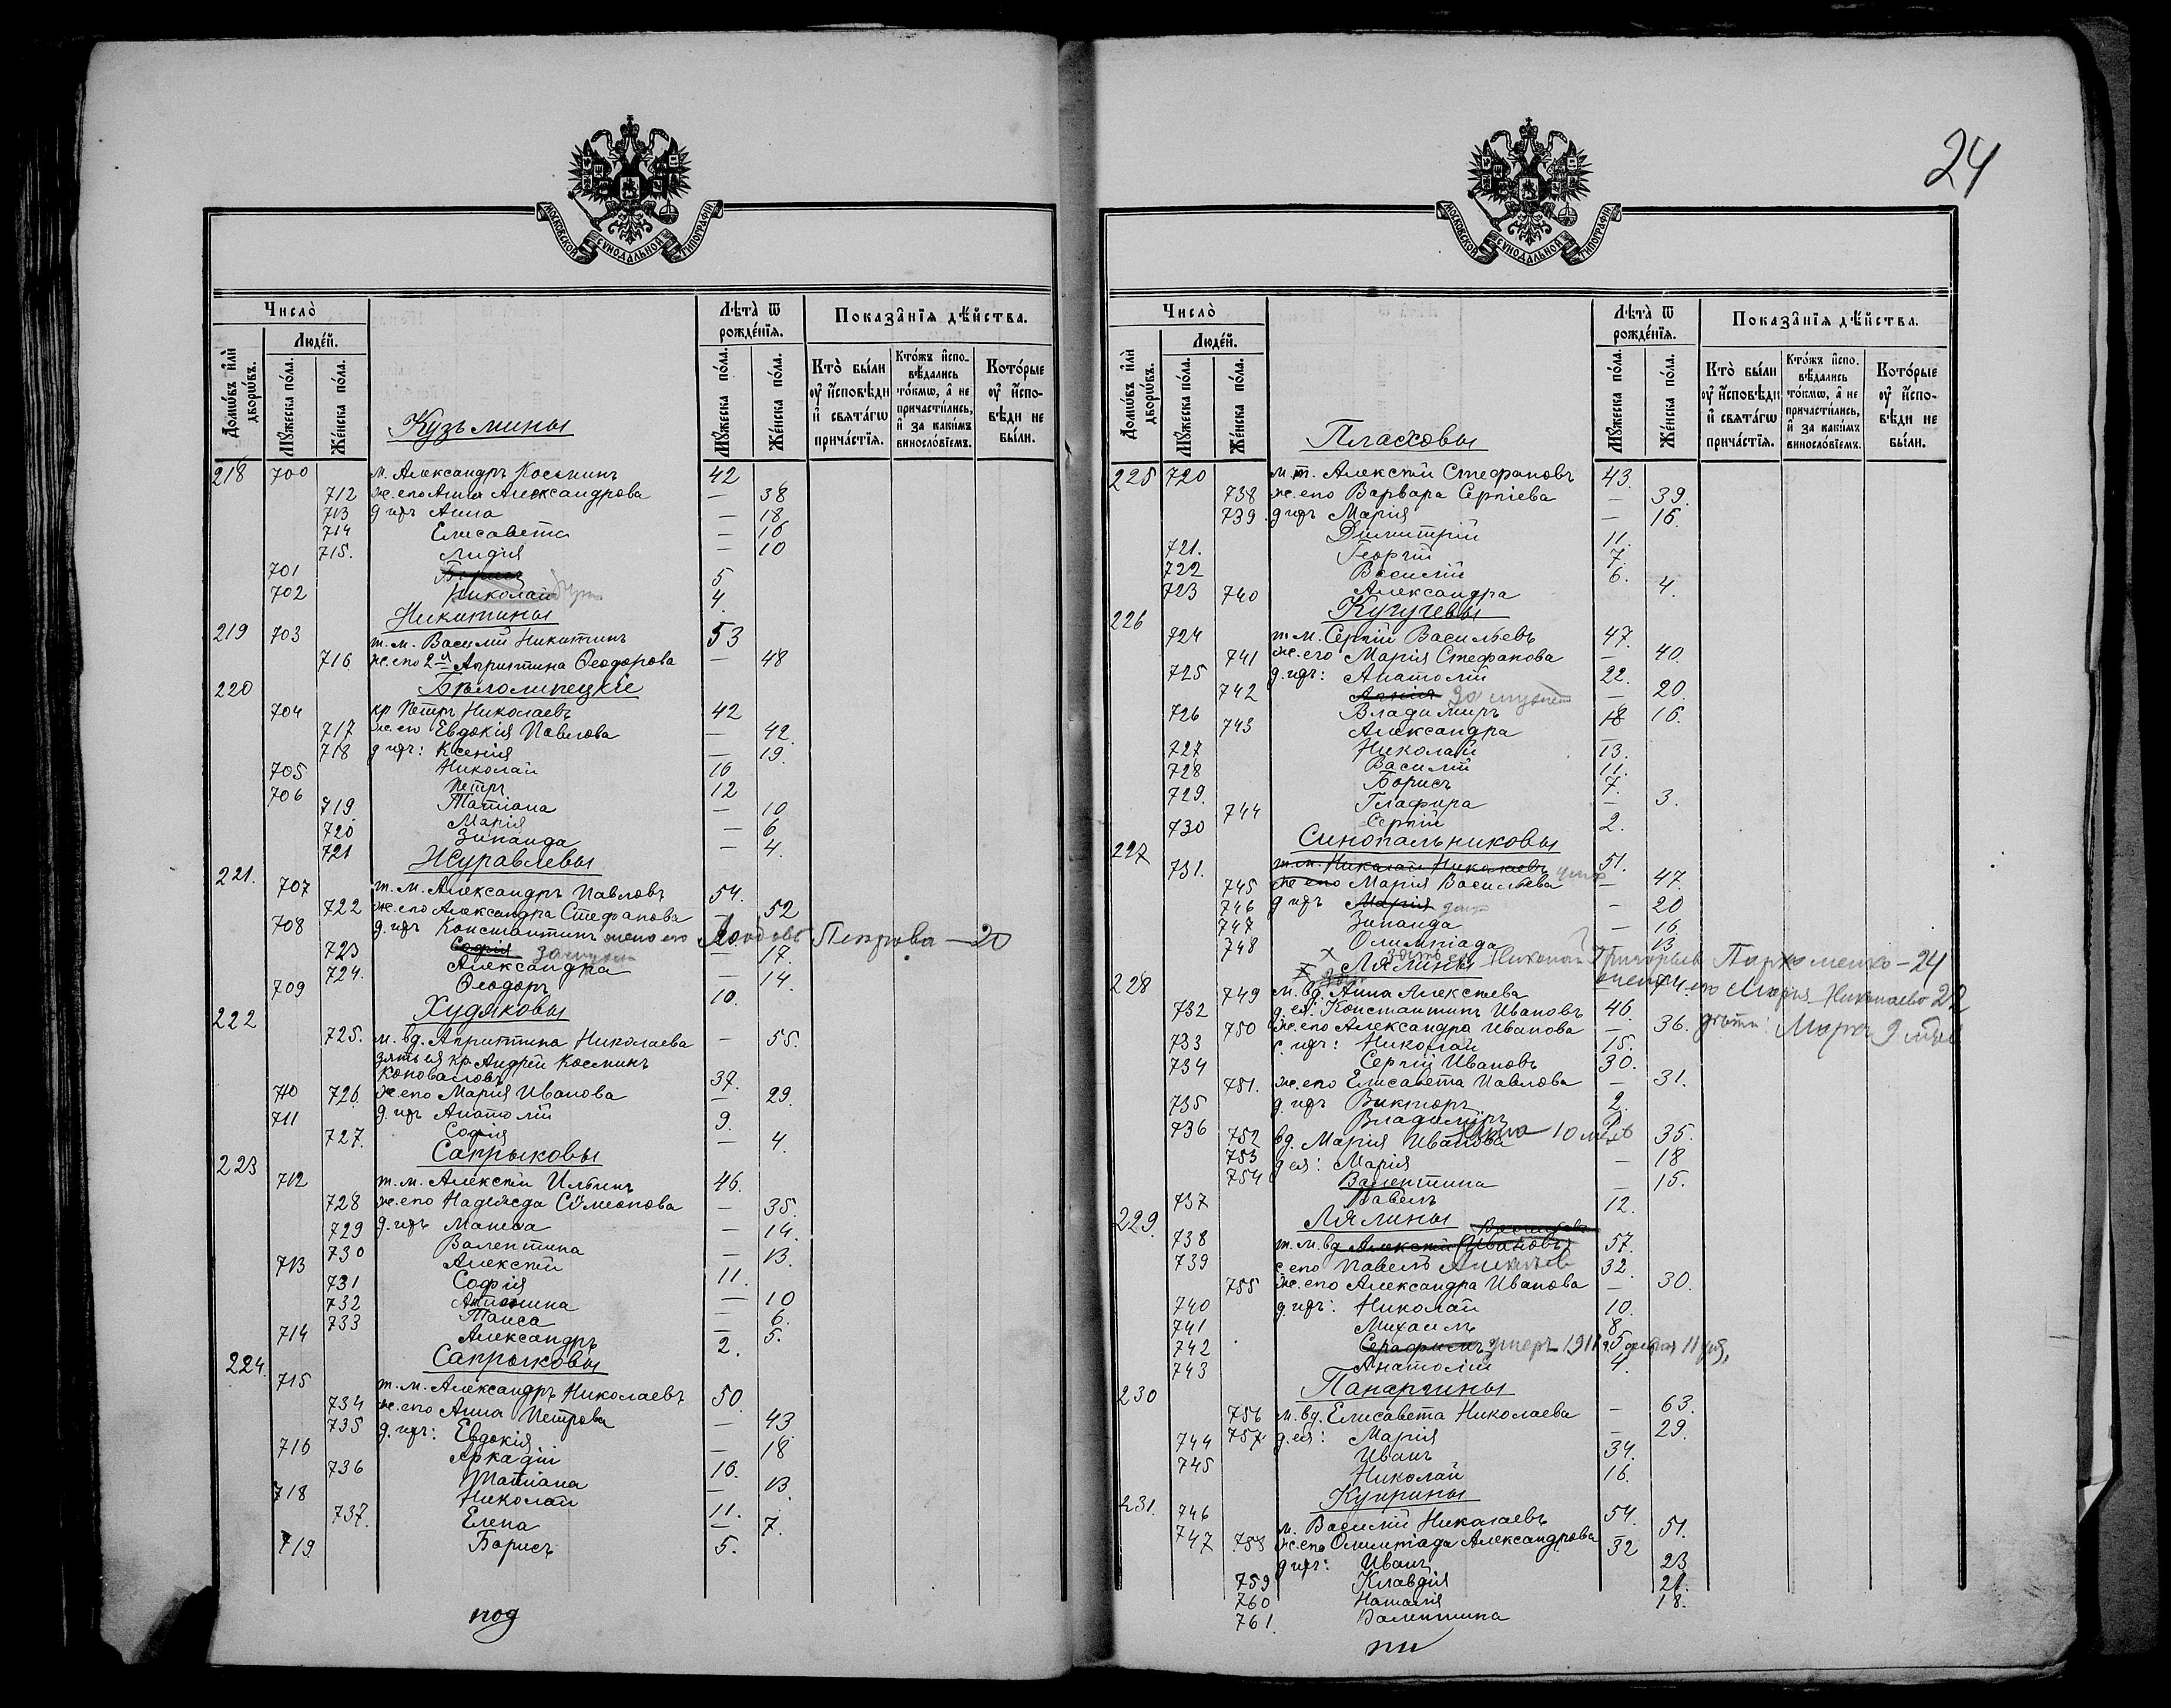 МОСКОВСКОЙ СѴНОДАЛЬНОЙ ТИПОГРАФІИ
Число̀
Лѣта̀ ѿ рожде́нїѧ.
Показа̑нїѧ дѣ́йства.
Людє́й.
Домѡ́въ и҆лѝ дворѡ́въ.
Мꙋ́жеска по́ла.
Же́нска по́ла.
Мꙋ́жеска по́ла.
Же́нска по́ла.
Кто̀ бы́ли ᲂу҆ и҆́сповѣди и҆ свѧта́гѡ прича́стїѧ.
Кто́жъ и҆спо-вѣ́дались то́кмѡ, а҆ не причасти́лись, и҆ за каки́мъ винослові́емъ.
Кото́рые ᲂу҆ и҆́спо-вѣди не бы́ли.
Кузьмины
218 700 м. Александръ Косьминъ 42
712 ж. его Анна Александрова — 38
713 д. ихъ Анна — 18
714 Елисавета — 16
715. Лидія — 10
701 Борисъ 5
702 Николай 4.
Никитины
219 703 т. м. Василій Никитинъ 53
716 ж. его 2-я Агриппина Ѳеодорова — 48
220 Бѣлолипецкіе
704 кр Петръ Николаевъ 42
717 ж. его Евдокія Павлова — 42.
718 д. ихъ: Ксенія — 19.
705 Николай 16
706 Петръ 12
719. Татіана — 10
720 Марія — 6
721 Зинаида — 4.
Журавлевы
221. 707 т. м. Александръ Павловъ 54.
722 ж. его Александра Стефанова — 52
708 д. ихъ Константинъ жена его Петрова — 20
723 Софія замужем — 17.
724. Александра — 14.
709 Ѳеодоръ 10.
Худяковы
222 725. м. вд. Агриппина Николаева — 55.
зять ея кр. Андрей Косьминъ
Коноваловъ 37.
710 726. ж. его Марія Иванова — 29.
711 д. ихъ Анатолій 9.
727. Софія — 4.
Сапрыковы
223 712 т. м. Алексѣй Ильинъ 46.
728 ж. его Надежда Сѵмеонова — 35.
729 д. ихъ — 14.
730 Валентина — 13.
713 Алексѣй 11.
731 Софія — 10
732 Антонина — 6.
733 Таиса — 5.
714 Александръ 2.
Сапрыковы
224. 715 т. м. Александръ Николаевъ 50.
734 ж. его Анна Петрова — 43.
735 д. ихъ: Евдокія — 18
716 Аркадій 16.
736 Татіана — 13.
718 Николай 11.
737. Елена — 7.
719 Борисъ 5.
под
24
МОСКОВСКОЙ СѴНОДАЛЬНОЙ ТИПОГРАФІИ
Число̀
Лѣта̀ ѿ рожде́нїѧ.
Показа̑нїѧ дѣ́йства.
Людє́й.
Домѡ́въ и҆лѝ дворѡ́въ.
Мꙋ́жеска по́ла.
Же́нска по́ла.
Мꙋ́жеска по́ла.
Же́нска по́ла.
Кто̀ бы́ли ᲂу҆ и҆́сповѣди и҆ свѧта́гѡ прича́стїѧ.
Кто́жъ и҆спо-вѣ́дались то́кмѡ, а҆ не причасти́лись, и҆ за каки́мъ винослові́емъ.
Кото́рые ᲂу҆ и҆́спо-вѣди не бы́ли.
Пласховы
225 720 м. т. Алексѣй Стефановъ 43.
738 ж. его Варвара Сергіева — 39.
739. д. ихъ Марія — 16.
721. Димитрій 11.
722 Георгій 7.
723 Василій 6.
740 Александра 4.
Кугучевы
226 724 т. м. Сергій Васильевъ 47.
741 ж. его Марія Стефанова — 40.
725 д. ихъ: Анатолій 22.
742 — 20.
726 Владиміръ 18
743 Александра — 16.
727 Николай 13.
728 Василій 11.
729. Борисъ 7.
744 Глафира — 3.
730 Сергій 2.
Синопальниковы
227 731. т. м. Николай Николаевъ умер 51.
745 ж. его Марія Васильева — 47.
746 д. ихъ Марія — 20
747 Зинаида — 16.
748 Олимпіада 13
Лялины Николай Григорьев Пархоменко — 24
жена его Мария Николаева 22
228 749 м. вд. Анна Алексѣева 74.
732 д. ея: Константинъ Ивановъ 46.
750 ж. его Александра Иванова — 36.
733 с. ихъ: Николай 15.
734 Сергій Ивановъ 30.
751. ж. его Елисавета Павлова — 31.
735 д. ихъ Викторъ 2.
736 Владиміръ
752 вд. Марія Иванова 35.
753 д. ея: Марія — 18
754 Валентина — 15.
737 Павелъ 12.
Лялины
229. 738 т. м. вд. Алексѣй Ивановъ 57.
739 с. его Павелъ 32.
755 ж. его Александра Иванова — 30.
740 д. ихъ: Николай 10.
741 Михаилъ 8
742 Серафимъ умеръ 1911 г. 5
743 Анатолій 4.
Панаргины
230 756 м. вд. Елисавета Николаева — 63.
757 д. ея: Марія — 29.
744 Иванъ 34.
745 Николай 16.
Куприны
231. 746 м. Василій Николаевъ 54.
758 ж. его Олимпіада Александрова — 51.
747 д. ихъ: Иванъ 32
759 Клавдія 23
760 Наталія 21.
761. Валентина 18.